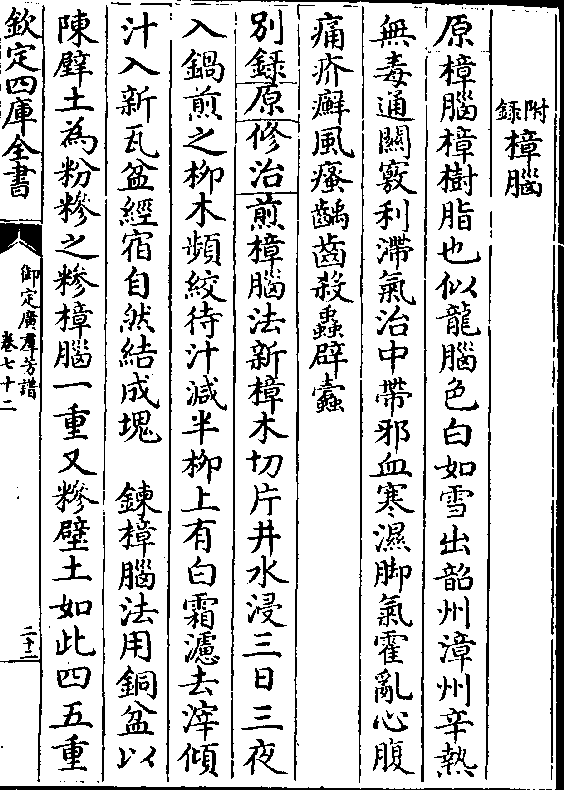 附錄樟腦
原樟腦樟樹脂也似龍腦色白如雪出韶州漳州辛熱
無毒通關竅利滯氣治中帶邪血寒濕脚氣霍亂心腹
痛疥癬風瘙齲齒殺蟲辟蠹
別錄原修治煎樟腦法新樟木切片井水浸三日三夜
入鍋煎之柳木頻絞待汁減半柳上有白霜濾去滓傾
汁入新瓦盆經宿自然結成塊　鍊樟腦法用銅盆以
陳壁土為粉糝之糝樟腦一重又糝壁土如此四五重
欽定四庫全書
御定廣羣芳譜
卷七十二
二十二